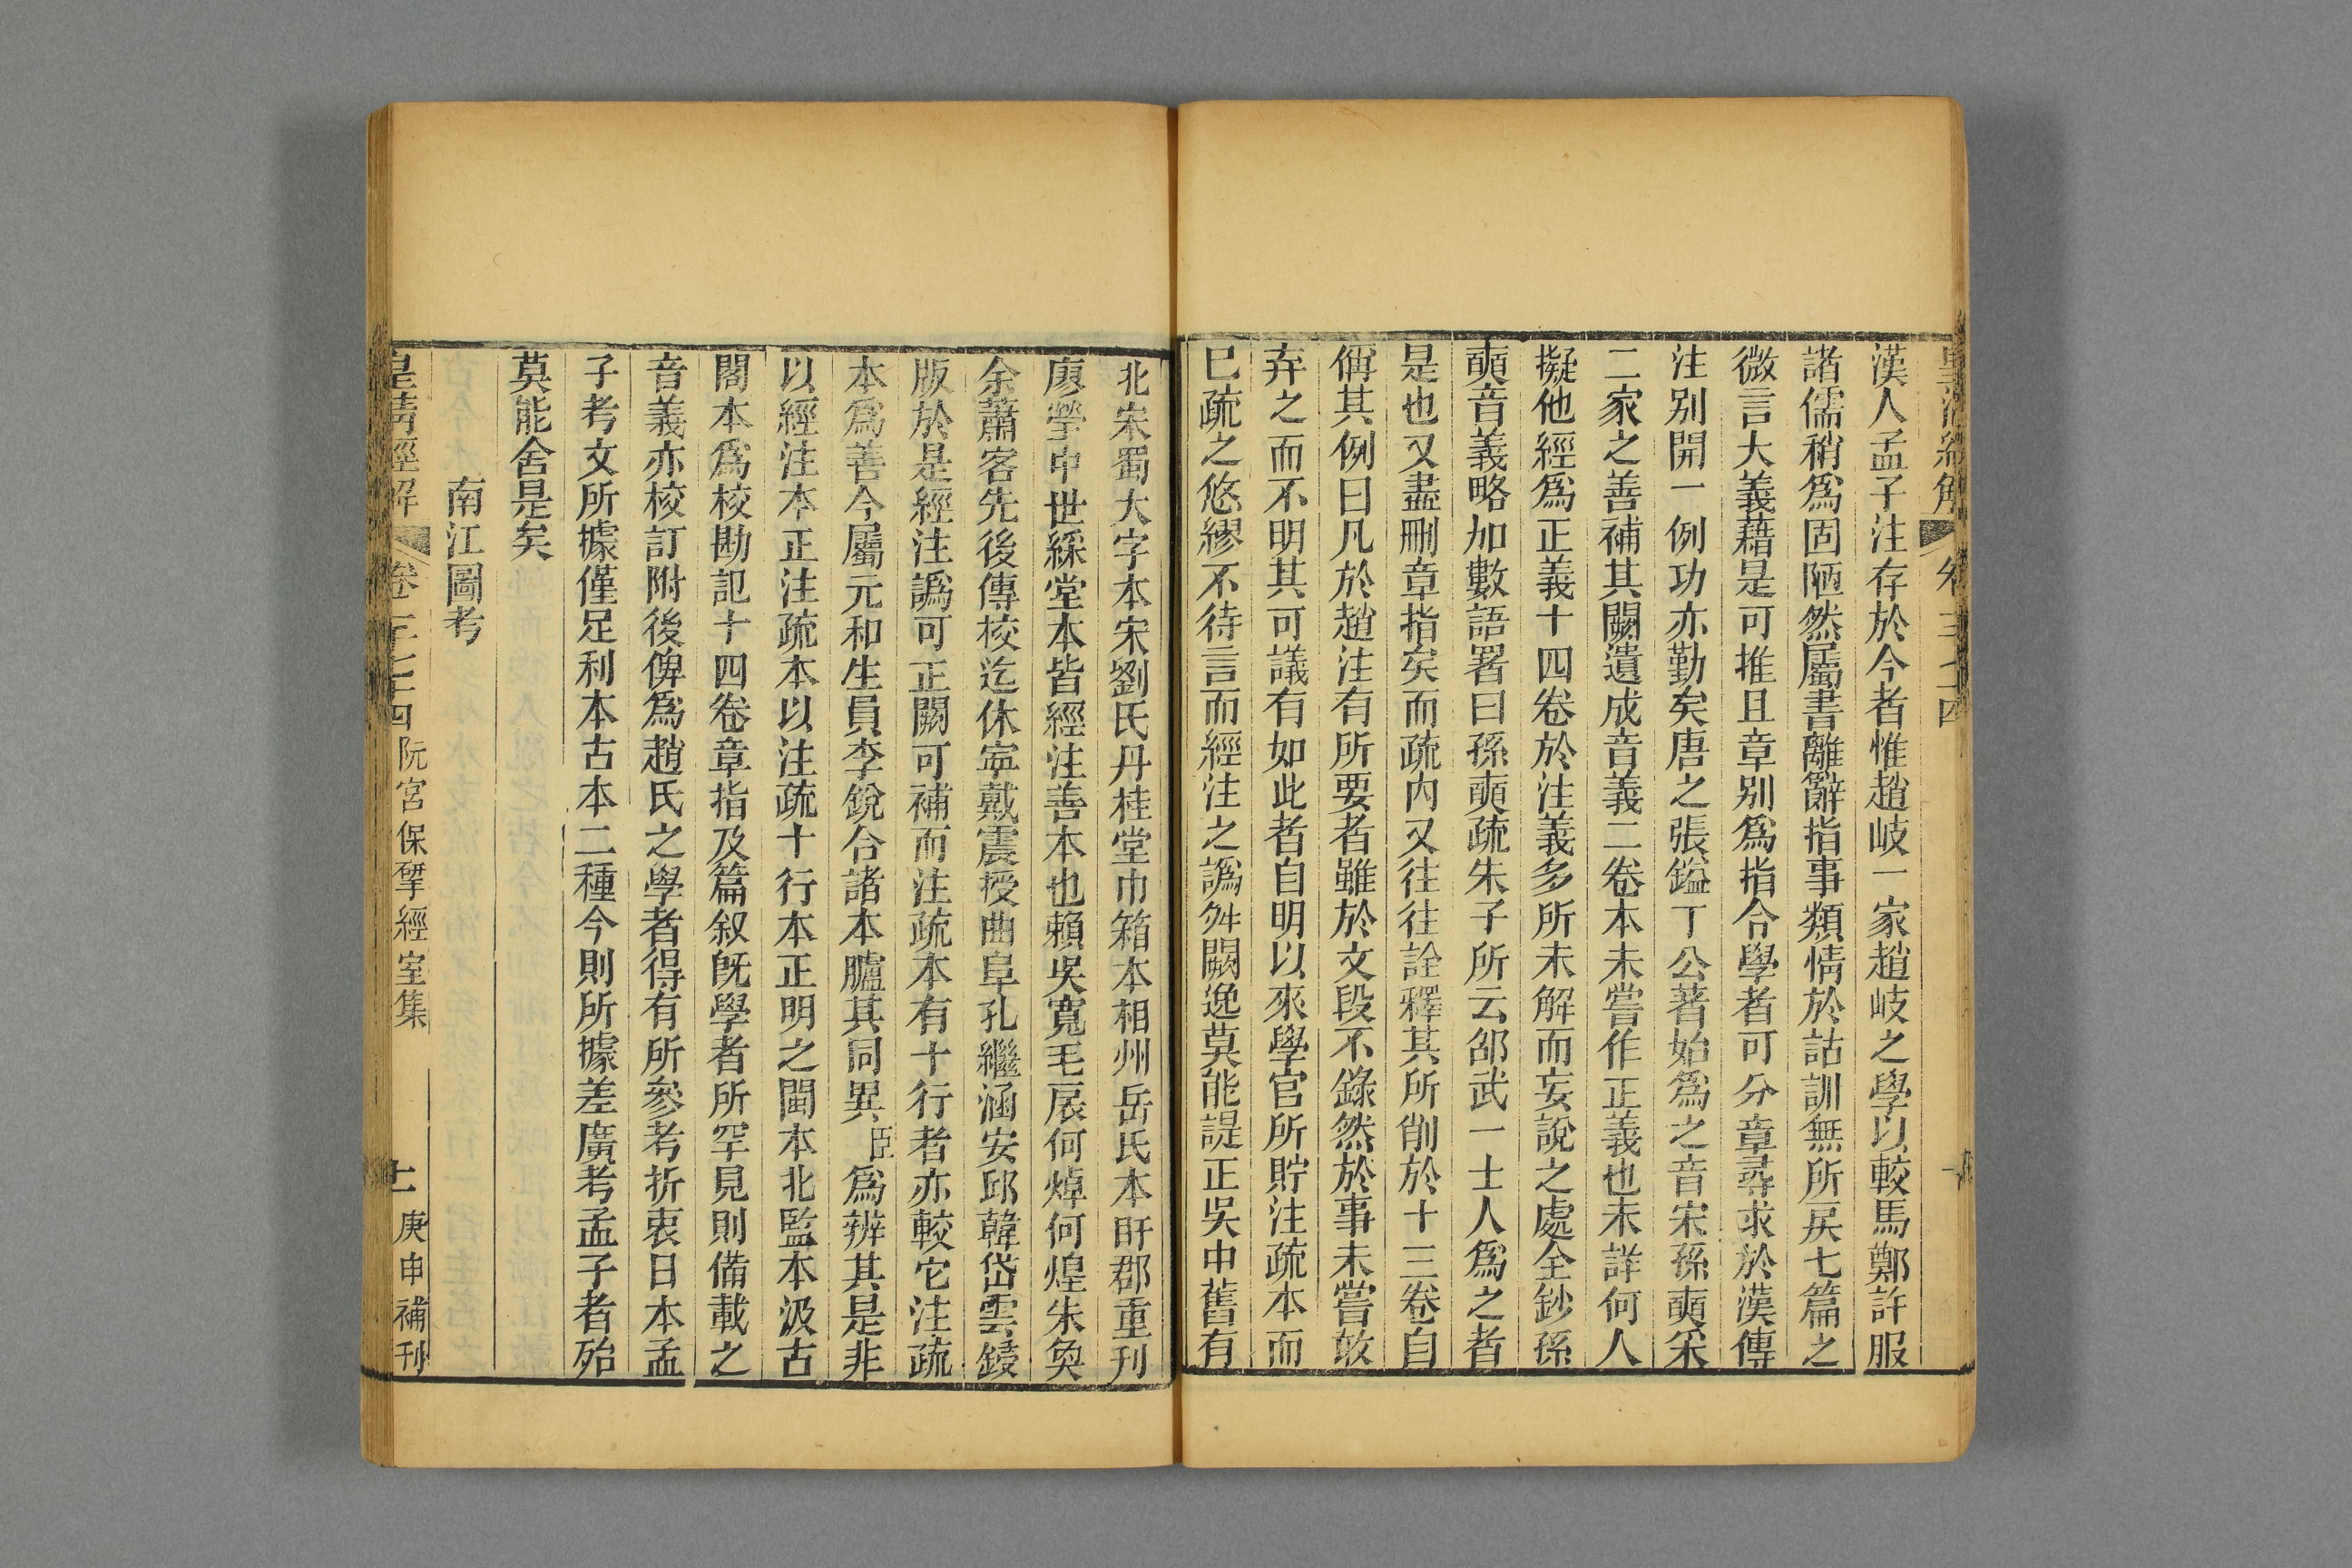 漢人孟子注存於今者惟趙岐一家趙岐之學以較馬鄭許服
諸儒稍爲固陋然屬書離辭指事類情於詁訓無所戾七篇之
微言大義藉是可推且章别爲指令學者可分章尋求於漢傳
注别開一例功亦勤矣唐之張鎰丁公著始爲之音宋孫奭采
二家之善補其闕遺成音義二卷本未嘗作正義也未詳何人
擬他經爲正義十四卷於注義多所未解而妄說之處全鈔孫
奭音義略加數語署曰孫奭疏朱子所云邵武一士人爲之者
是也又盡刪章指矣而疏内又往往詮釋其所削於十三卷自
偁其例曰凡於趙注有所要者雖於文段不錄然於事未嘗敢
弃之而不明其可議有如此者自明以來學官所貯注疏本而
已疏之悠繆不待言而經注之譌舛闕逸莫能諟正吳中舊有
北宋蜀大字本宋劉氏丹桂堂巾箱本相州岳氏本盱郡重刊
廖瑩中世綵堂本皆經注善本也賴吳寬毛扆何焯何煌朱奐
余蕭客先後傳校迄休寧戴震授曲阜孔繼涵安邱韓岱雲鋟
版於是經注譌可正闕可補而注疏本有十行者亦較它注疏
本爲善今屬元和生員李銳合諸本臚其同異臣爲辨其是非
以經注本正注疏本以注疏十行本正明之閩本北監本汲古
閣本爲校勘記十四卷章指及篇叙旣學者所罕見則備載之
音義亦校訂附後俾爲趙氏之學者得有所參考折衷日本孟
子考文所據僅足利本古本二種今則所據差廣考孟子者殆
莫能舍是矣
南江圖考
皇清經解 卷一千七十四 阮宮保揅經室集 十一 庚申補刊